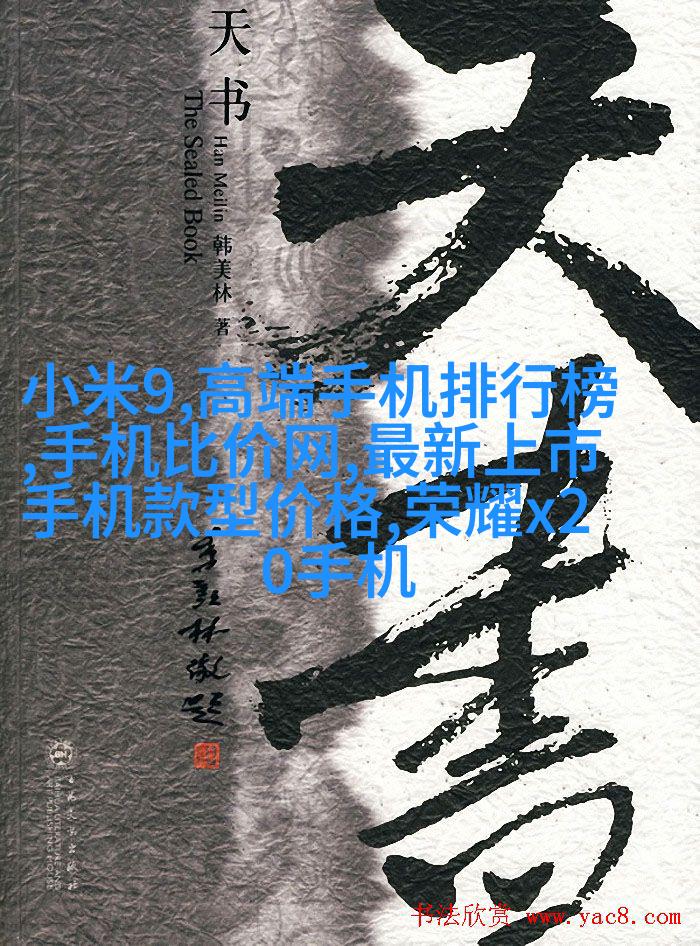 天书
Han Meilin 韩美林 著
The Sealed Book
天书
小米9,高端手机排行榜
,手机比价网,最新上市
手机款型价格,荣耀x2
0手机
书法欣赏 www.yac8.com